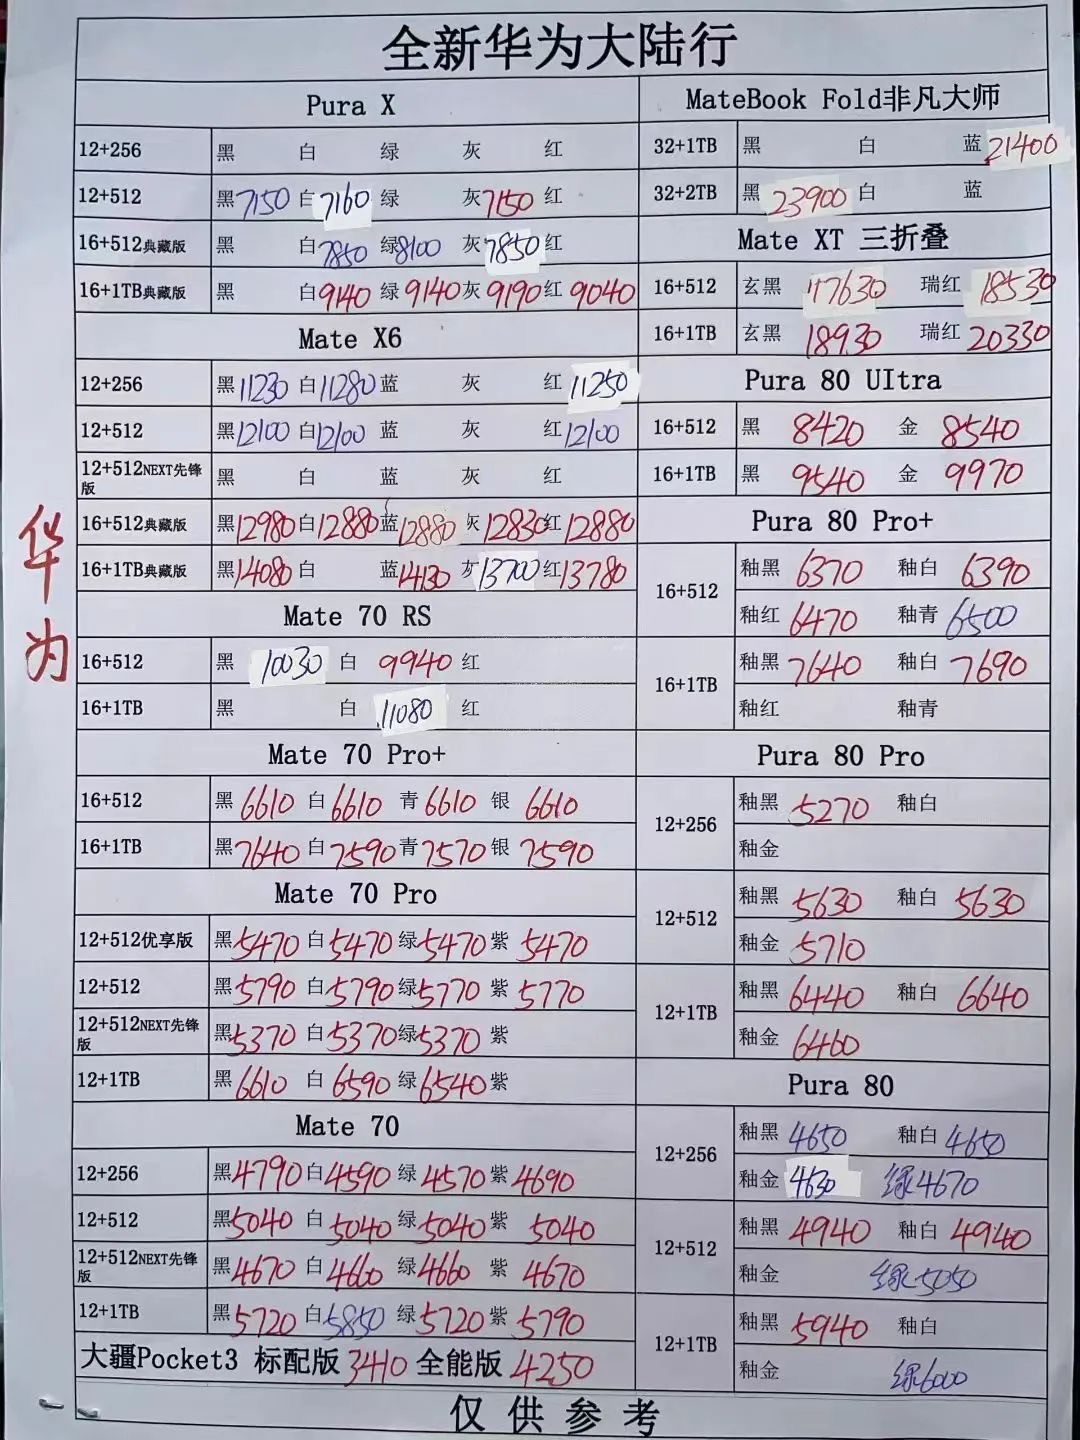 全新华为大陆行
华为
Pura X
12+256 黑 白 绿 灰 红
12+512 黑7150 白7160 绿 灰7150 红
16+512典藏版 黑 白7850 绿8100 灰7850 红
16+1TB典藏版 黑 白9140 绿9140 灰9190 红9040
Mate X6
12+256 黑11230 白11280 蓝 灰 红11250
12+512 黑12100 白12100 蓝 灰 红12100
12+512NEXT先锋版 黑 白 蓝 灰 红
16+512典藏版 黑12980 白12880 蓝12880 灰12830 红12880
16+1TB典藏版 黑14080 白 蓝14130 灰13700 红13780
Mate 70 RS
16+512 黑10030 白9940 红
16+1TB 黑 白11080 红
Mate 70 Pro+
16+512 黑6610 白6610 青6610 银6610
16+1TB 黑7640 白7590 青7570 银7590
Mate 70 Pro
12+512优享版 黑5470 白5470 绿5470 紫5470
12+512 黑5790 白5790 绿5770 紫5770
12+512NEXT先锋版 黑5370 白5370 绿5370 紫
12+1TB 黑6610 白6590 绿6540 紫
Mate 70
12+256 黑4790 白4590 绿4570 紫4690
12+512 黑5040 白5040 绿5040 紫5040
12+512NEXT先锋版 黑4670 白4660 绿4660 紫4670
12+1TB 黑5720 白5850 绿5720 紫5790
大疆Pocket3 标配版3410 全能版4250
MateBook Fold非凡大师
32+1TB 黑 白 蓝21400
32+2TB 黑23900 白 蓝
Mate XT 三折叠
16+512 玄黑17630 瑞红18530
16+1TB 玄黑18930 瑞红20330
Pura 80 UItra
16+512 黑8420 金8540
16+1TB 黑9540 金9970
Pura 80 Pro+
16+512 釉黑6370 釉白6390
釉红6470 釉青6500
16+1TB 釉黑7640 釉白7690
釉红 釉青
Pura 80 Pro
12+256 釉黑5270 釉白
釉金
12+512 釉黑5630 釉白5630
釉金5710
12+1TB 釉黑6440 釉白6640
釉金6460
Pura 80
12+256 釉黑4650 釉白4650
釉金4630 绿4670
12+512 釉黑4940 釉白4940
釉金 绿5050
12+1TB 釉黑5940 釉白
釉金 绿6000
仅供参考